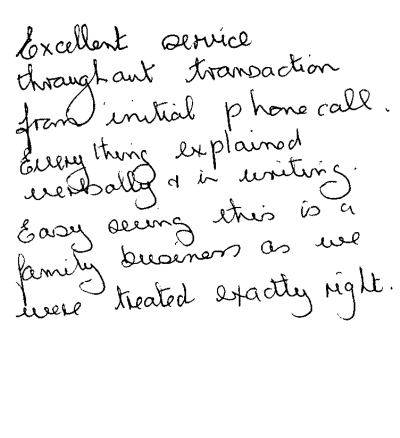 Excellent service
throughout transaction
from initial phone call.
Everything explained
verbally & in writing.
Easy seeing this is a
family business as we
were treated exactly right.